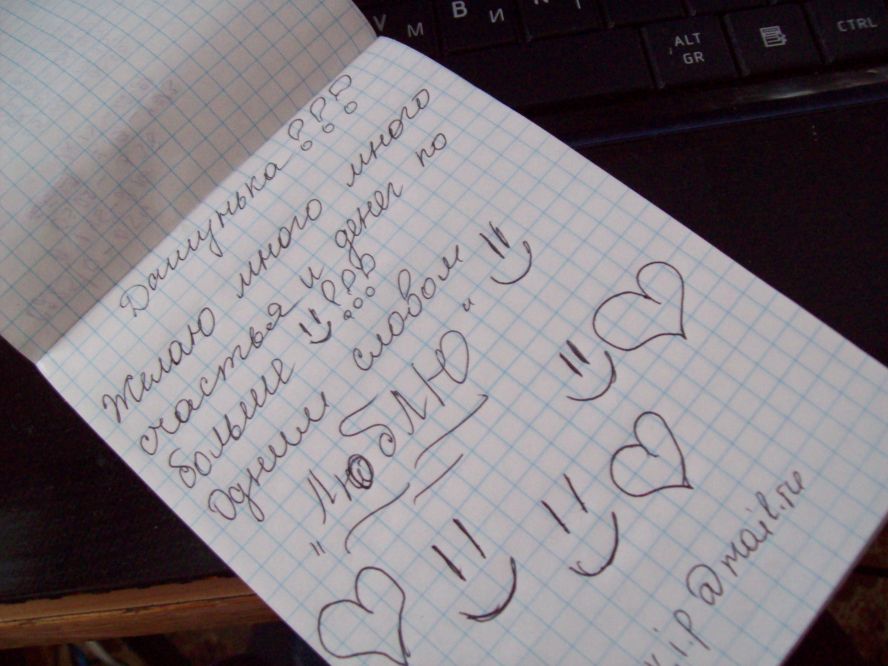 Дашунька!!!
Желаю много много
счастья и денег по
больше !!!
одним словом
"Люблю"
.i.p@mail.ru
М
В
И
ALT GR
CTRL